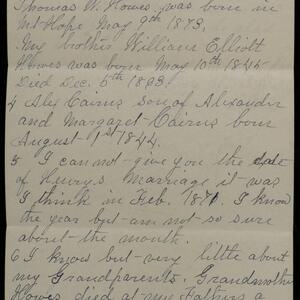 Thomas W. Howes was born in
Mt Hope May 9th 1873.
My brother William Elliott
Howes was born May 10th 1845
Died Dec. 5th 1883.
4 Alex Cairns Son of Alexander
and Margaret Cairns born
August 1st 1844.
5 I can not give you the date
of Henry's Marriage it was
I think in Feb. 1871. I know
the year but am not so sure
about the month.
6 I know but very little about
my Grandparents. Grandmother
Howes died at my Fathers a